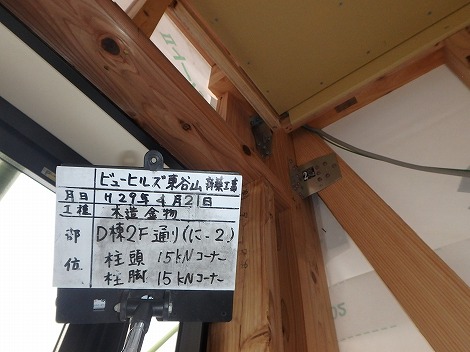 ビューヒルズ東谷山 新築工事
月日 H29年4月21日
工種 木造金物
部位 D棟2F通り(に-2)
柱頭 15kNコーナー
柱脚 15kNコーナー